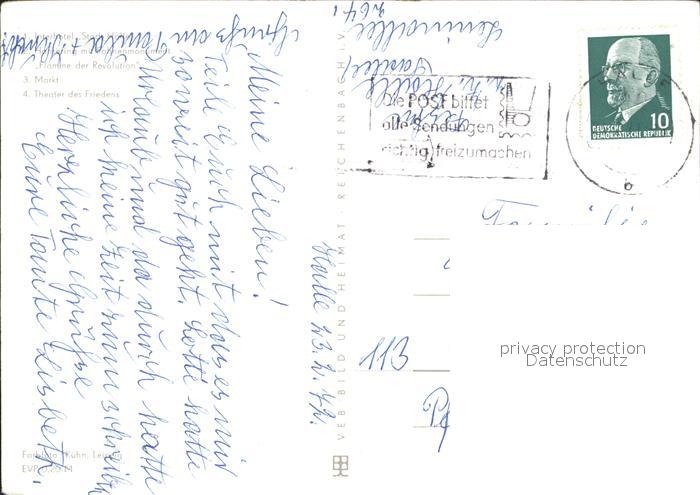 Halle 23.2.72.
Meine Lieben!
Teile Euch mit dass es mir
soweit gut geht. Lotte hatte
Urlaub und da durch hatte
ich keine Zeit zum schreiben
Herzliche Grüße
Eure Tante Lisbeth.
Gruß an Familie +
3. Markt
4. Theater des Friedens
"Flamme der Revolution"
Farbfoto: Kühn, Leipzig
EVP 0,20 M
VEB BILD UND HEIMAT · REICHENBACH i. V.
Die POST bittet
alle Sendungen
richtig freizumachen
HALLE
b
10
DEUTSCHE
DEMOKRATISCHE REPUBLIK
Leninallee
Halle
113
privacy protection
Datenschutz